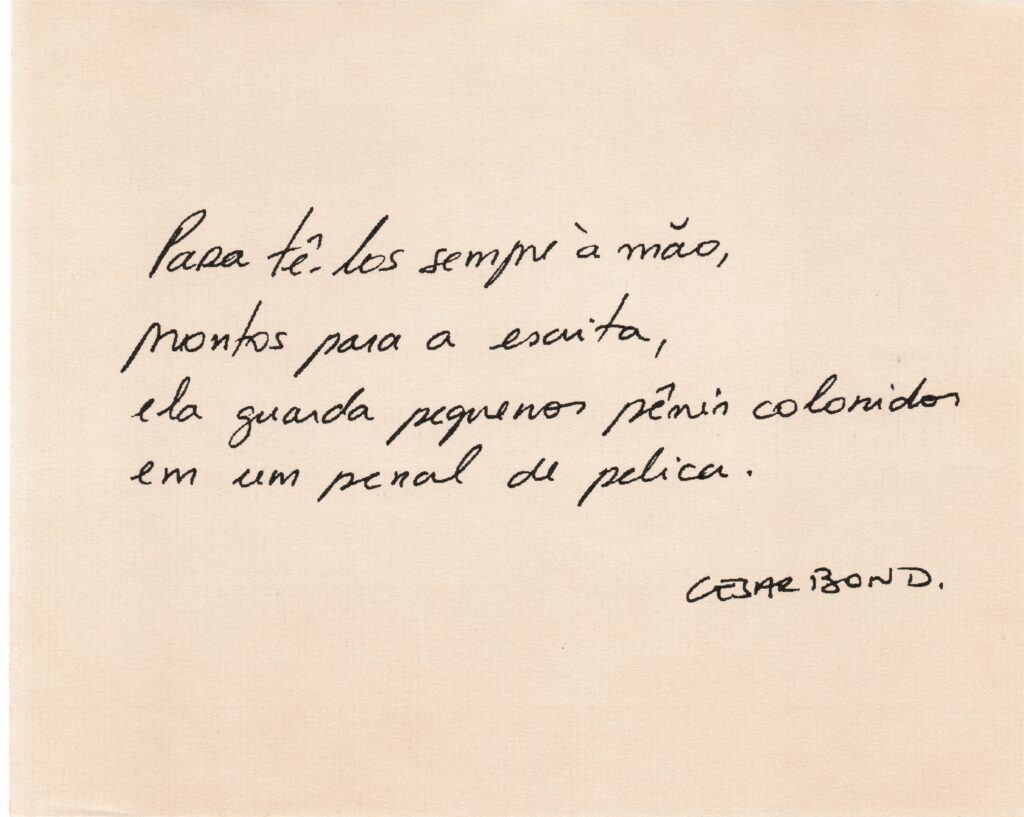 Para tê-los sempre à mão,
prontos para a escrita,
ela guarda pequenos pênis coloridos
em um penal de pelica.
CESAR BOND.